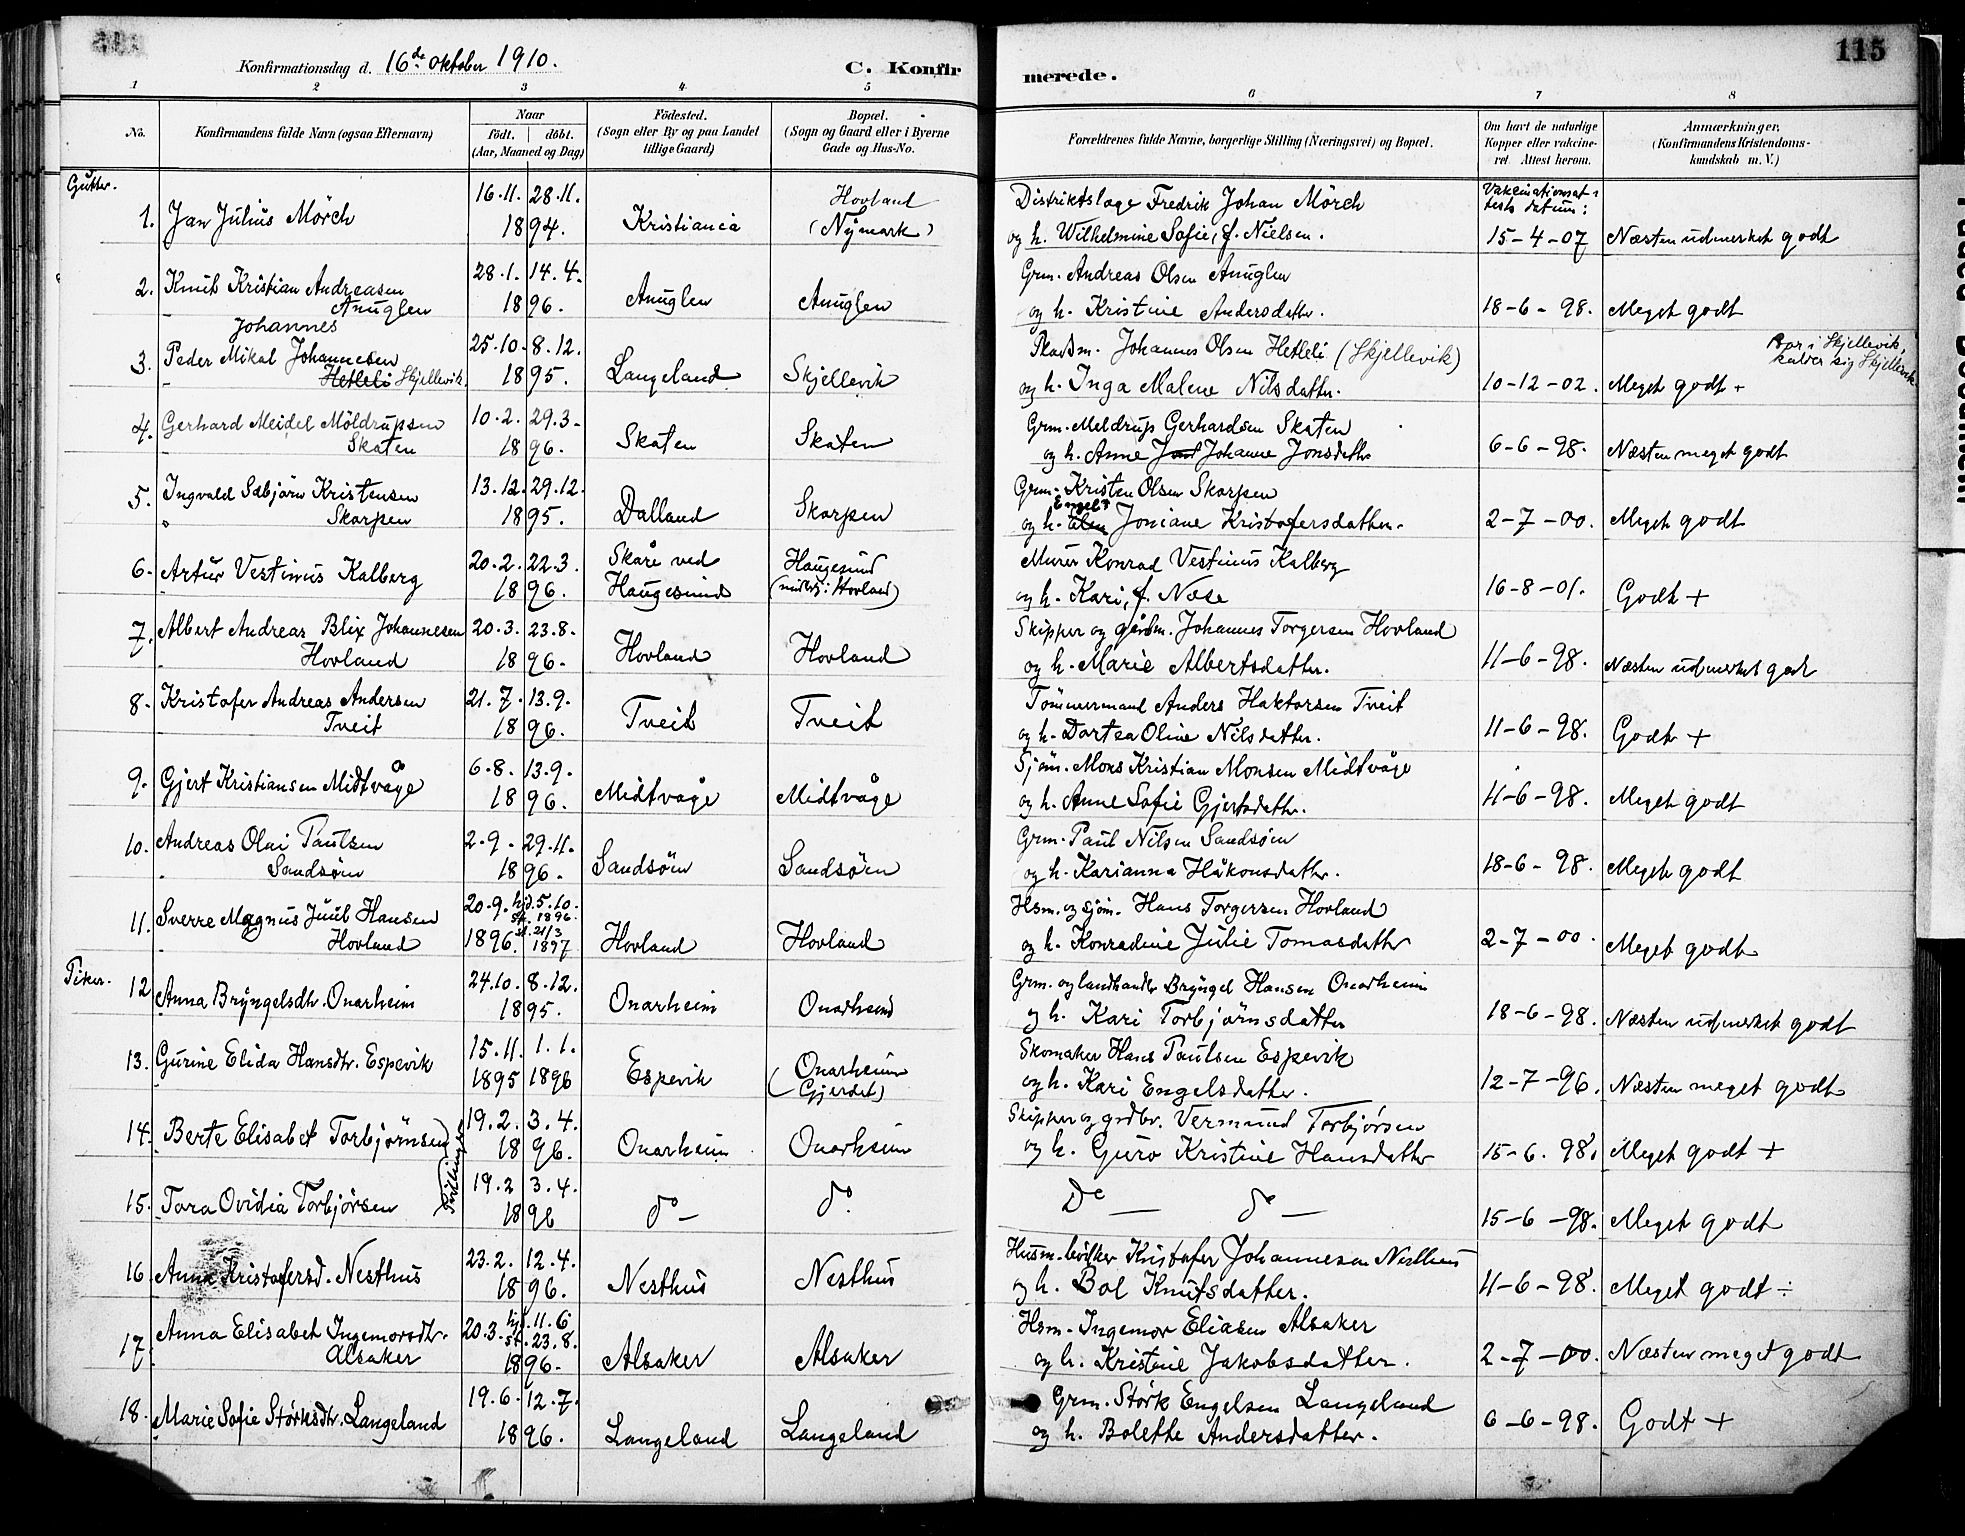 Konfirmationsdag d. 16de oktober 1910.
C. Konfirmerede.
115
1 2 3 4 5 6 7 8
No.
Konfirmandens fulde Navn (ogsaa Efternavn)
Naar
födt. | döbt.
(Aar, Maaned og Dag)
Födested.
(Sogn eller By og paa Landet
tillige Gaard)
Bopæl.
(Sogn og Gaard eller i Byerne
Gade og Hus-No.
Forældrenes fulde Navne, borgerlige Stilling (Næringsvei) og Bopæl.
Om havt de naturlige
Kopper eller vakcine-
ret. Attest herom.
Anmærkninger.
(Konfirmandens Kristendoms-
kundskab m. V.)
Gutter.
Vakcinationsat-
tests datum:
1. Jan Julius Mörch
16.11. 28.11.
1894.
Kristiania
Hovland
(Nymark)
Distriktslæge Fredrik Johan Mörch
og h. Wilhelmine Sofie, f. Nielsen.
15-4-07
Næsten udmerket godt
2. Knut Kristian Andreasen
Anuglen
28.1. 14.4.
1896.
Anuglen
Anuglen
Grm. Andreas Olsen Anuglen
og h. Kristine Andersdatter.
18-6-98.
Meget godt
Johannes
3. Peder Mikal Johannesen
Hetleli Skjellevik.
25.10. 8.12.
1895.
Langeland
Skjellevik
Pladsm. Johannes Olsen Hetleli (Skjellevik)
og h. Inga Malene Nilsdatter.
10-12-02.
Meget godt -
Bor i Skjellevik,
kalder sig Skjellevik
4. Gerhard Meidel Möldrupsen
Skaten
10.2. 29.3-
1896.
Skaten
Skaten
Grm. Meldrup Gerhardsen Skaten
og h. Anne Johanne Jonsdatter
6-6-98.
Næsten meget godt
5. Ingvald Sæbjörn Kristensen
Skorpen
13.12. 29.12.
1895.
Dalland
Skorpen
Grm. Kristen Olsen Skorpen
Engel
og h. Elen Joniane Kristofersdatter.
2-7-00.
Meget godt
6. Artur Vestinus Kalberg
20.2. 22.3.
1896.
Skåre ved
Haugesund
Haugesund
(midlt. i Hovland)
Murer Konrad Vestinus Kalberg
og h. Kari, f. Næse
16-8-01.
Godt +
7. Albert Andreas Blix Johannesen
Hovland
20.3. 23.8.
1896.
Hovland
Hovland
Skipper og gårdm. Johannes Torgersen Hovland
og h. Marie Albertsdatter.
11-6-98.
Næsten udmerket godt
8. Kristofer Andreas Andersen
Tveit
21.7. 13.9.
1896.
Tveit
Tveit
Tömmermand Anders Haktorsen Tveit
og h. Dortea Oline Nilsdatter.
11-6-98.
Godt +
9. Gjert Kristiansen Midtvåge
6.8. 13.9.
1896.
Midtvåge
Midtvåge
Sjöm. Mons Kristian Monsen Midtvåge
og h. Anne Sofie Gjertsdatter.
11-6-98.
Meget godt
10. Andreas Olai Paulsen
Sandsöen
2.9. 29.11.
1896.
Sandsöen
Sandsöen
Grm. Paul Nilsen Sandsöen
og h. Karianna Håkonsdatter.
18-6-98.
Meget godt
11. Sverre Magnus Juul Hansen
Hovland
20.9. hjd. 5.10.
1896.
1896. st. 21/3
1897
Hovland
Hovland
Hsm. og sjöm. Hans Torgersen Hovland
og h. Konradine Julie Tomasdatter
2-7-00.
Meget godt
Piker.
12. Anna Bryngelsdtr. Onarheim
24.10. 8.12.
1895.
Onarheim
Onarheim
Grm. og landhandlr Bryngel Hansen Onarheim
og h. Kari Torbjörnsdatter
18-6-98.
Næsten udmerket godt
13. Gurine Elida Hansdtr. Espevik
15.11. 1.1.
1895 1896
Espevik
Onarheim
(Gjerdet)
Skomaker Hans Paulsen Espevik
og h. Kari Engelsdatter.
12-7-96.
Næsten meget godt
14. Berte Elisabet Torbjörnsen
19.2. 3.4.
1896.
Onarheim
Onarheim
Skipper og grdbr. Vermund Torbjørsen
og h. Guro Kristine Hansdatter
15-6.98.
Meget godt +
Tvillinger
15. Tora Ovidia Torbjörsen
19.2 3.4.
1896
do —
do.
Do — do —
15-6-98.
Meget godt
16. Anna Kristofersd. Nesthus
23.2. 12.4.
1896.
Nesthus
Nesthus
Husm. Kristofer Johannesen Nesthus
og h. Bol Knutsdatter.
11-6-98.
Meget godt ÷
17. Anna Elisabet Ingemorsdtr.
Alsaker
20.3. hjd. 11.6
st. 23.8.
1896.
Alsaker
Alsaker
Hsm. Ingemor Eliasen Alsaker
og h. Kristine Jakobsdatter.
2-7-00.
Næsten meget godt
18. Marie Sofie Störksdtr. Langeland
19.6. 12.7.
1896.
Langeland
Langeland
Grm. Störk Engelsen Langeland
og h. Bolette Andersdatter.
6-6-98.
Godt +